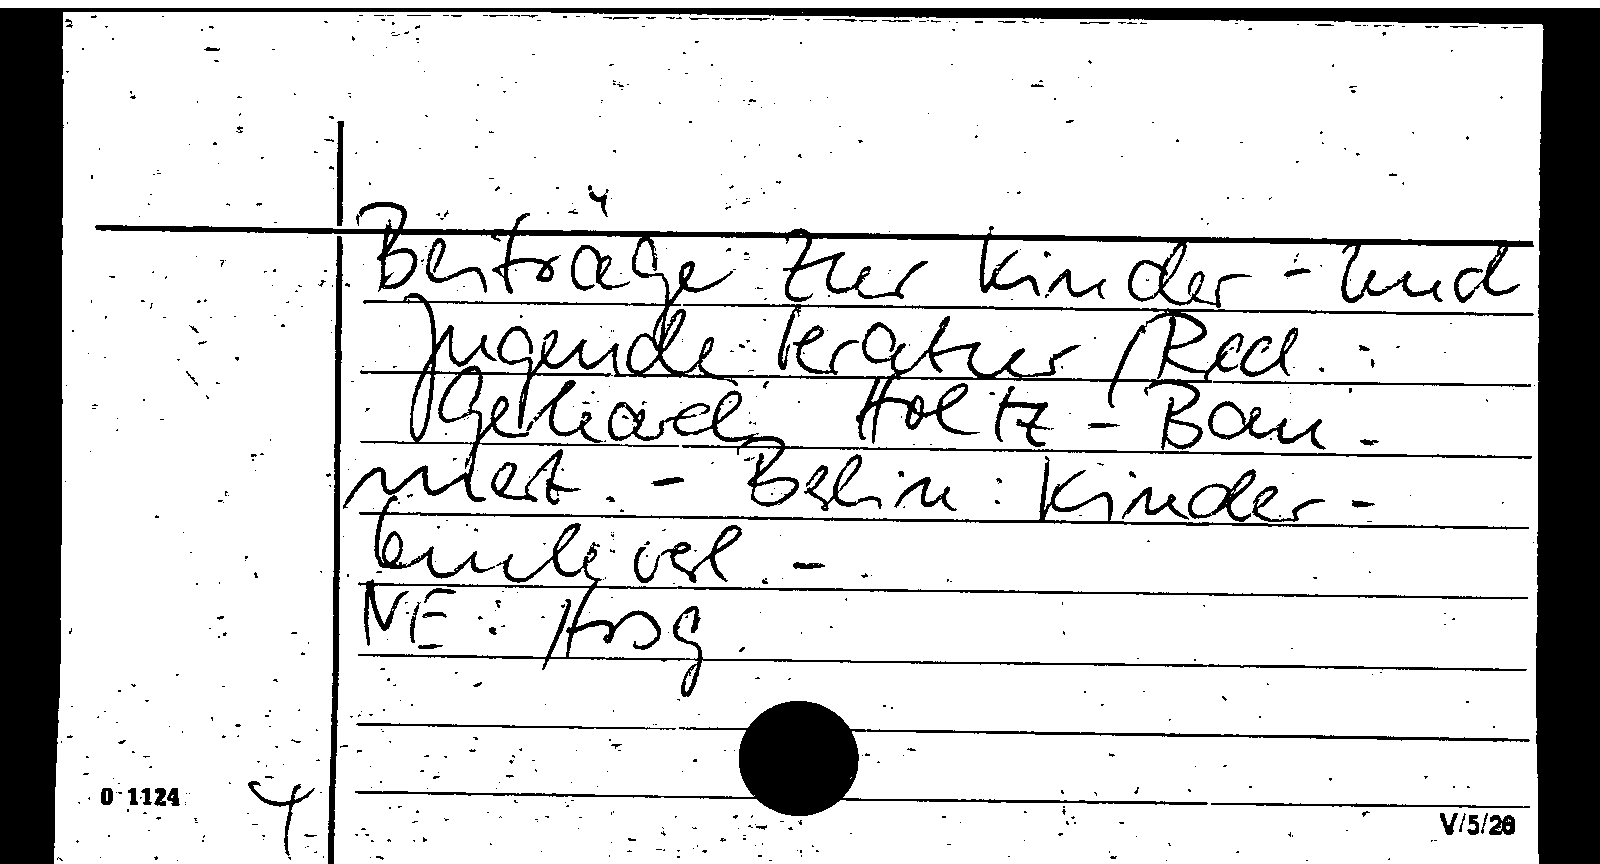 Beiträge zur Kinder- und
Jugendliteratur / Red.:
Gerhard Holtz-Bau-
mert. - Berlin: Kinder-
buchverl. -
NE: Hrsg.
0 1124
V/5/28